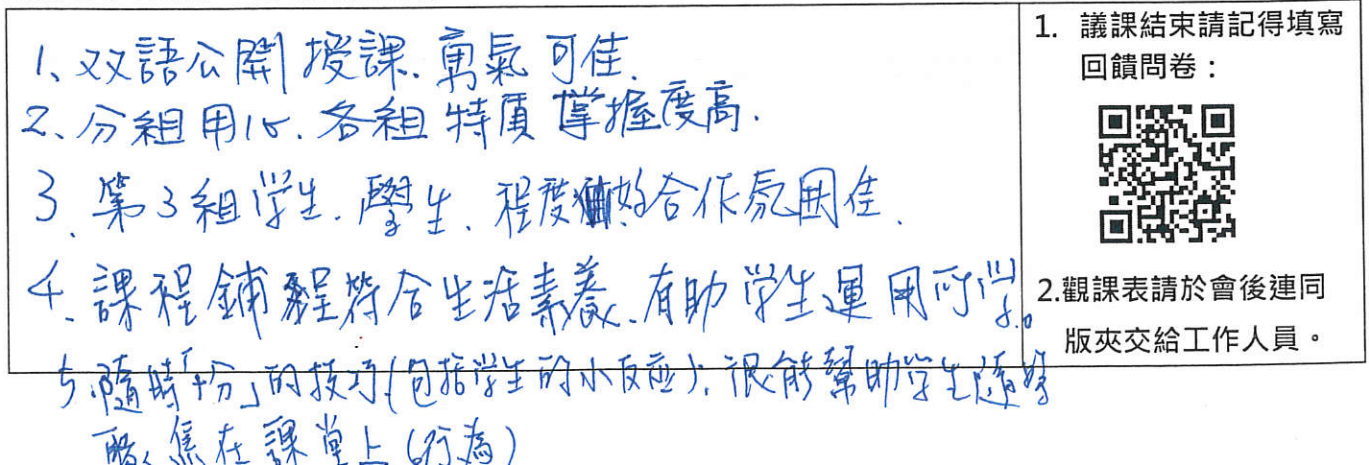 1、双語公開授課.勇氣可佳.
2、分組用心.各組特質掌握度高.
3.第3組学生.學生、程度好合作氛围佳.
4.課程鋪程符合生活素養.有助学生運用所学。
5.隨時「+分」的技巧(包括学生的小反应).很能幫助学生隨時
聚焦在課堂上(行為)
1. 議課結束請記得填寫
回饋問卷：
2.觀課表請於會後連同
版夾交給工作人員。